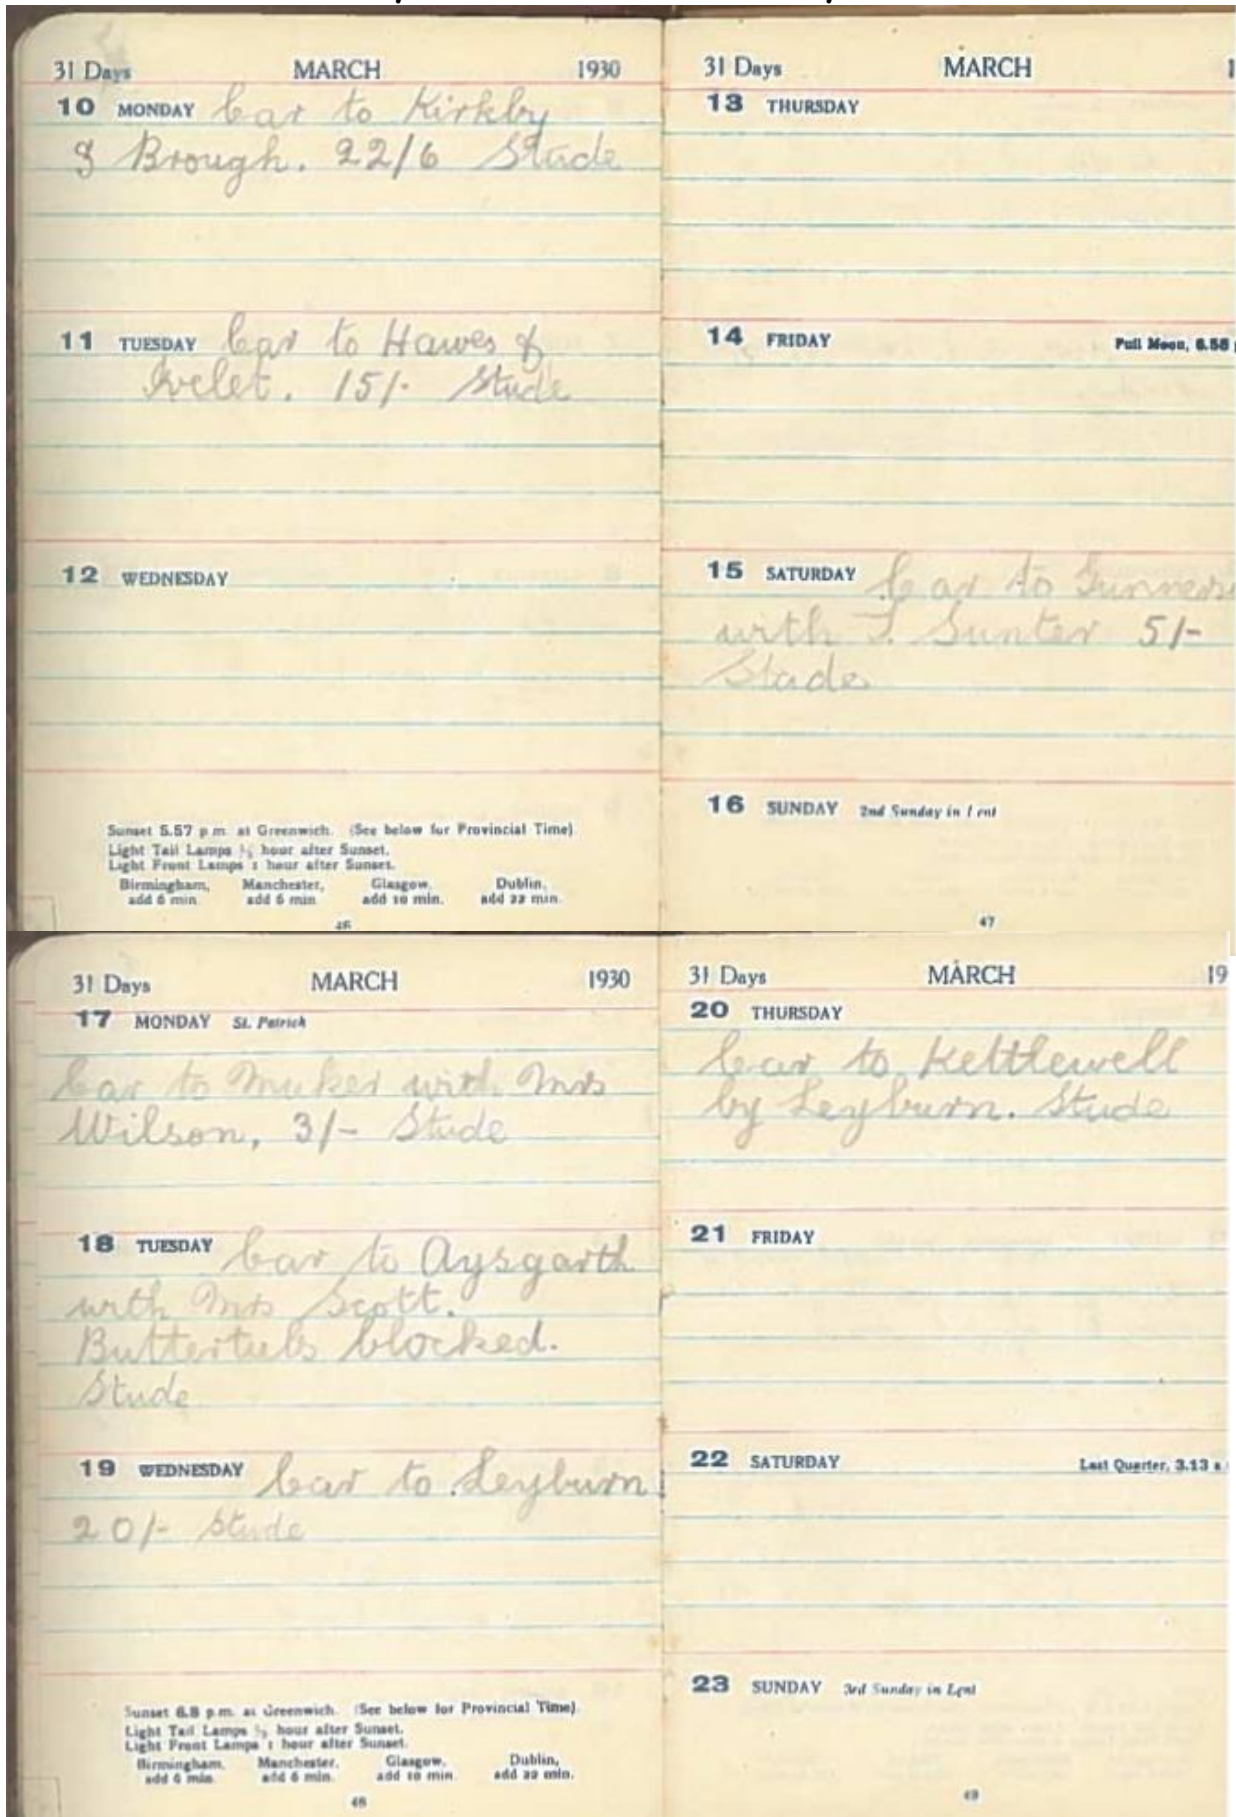 31 Days MARCH 1930
10 MONDAY Car to Kirkby
& Brough. 22/6 Stude
11 TUESDAY Car to Hawes &
Ivelet. 15/- Stude
12 WEDNESDAY
Sunset 5.57 p.m. at Greenwich. (See below for Provincial Time)
Light Tail Lamps ½ hour after Sunset.
Light Front Lamps 1 hour after Sunset.
Birmingham, Manchester, Glasgow, Dublin,
add 6 min. add 6 min. add 10 min. add 22 min.
46
31 Days MARCH 1
13 THURSDAY
14 FRIDAY Full Moon, 6.58 p
15 SATURDAY Car to Gunners
with T. Sunter 5/-
Stude
16 SUNDAY 2nd Sunday in Lent
47
31 Days MARCH 1930
17 MONDAY St. Patrick
Car to Muker with Mrs
Wilson, 3/- Stude
18 TUESDAY Car to Aysgarth
with Mrs Scott.
Buttertubs blocked.
Stude
19 WEDNESDAY Car to Leyburn
20/- Stude
Sunset 6.8 p.m. at Greenwich. (See below for Provincial Time)
Light Tail Lamps ½ hour after Sunset.
Light Front Lamps 1 hour after Sunset.
Birmingham, Manchester, Glasgow, Dublin,
add 6 min. add 6 min. add 10 min. add 22 min.
48
31 Days MARCH 19
20 THURSDAY
Car to Kettlewell
by Leyburn. Stude
21 FRIDAY
22 SATURDAY Last Quarter, 3.13 a
23 SUNDAY 3rd Sunday in Lent
49